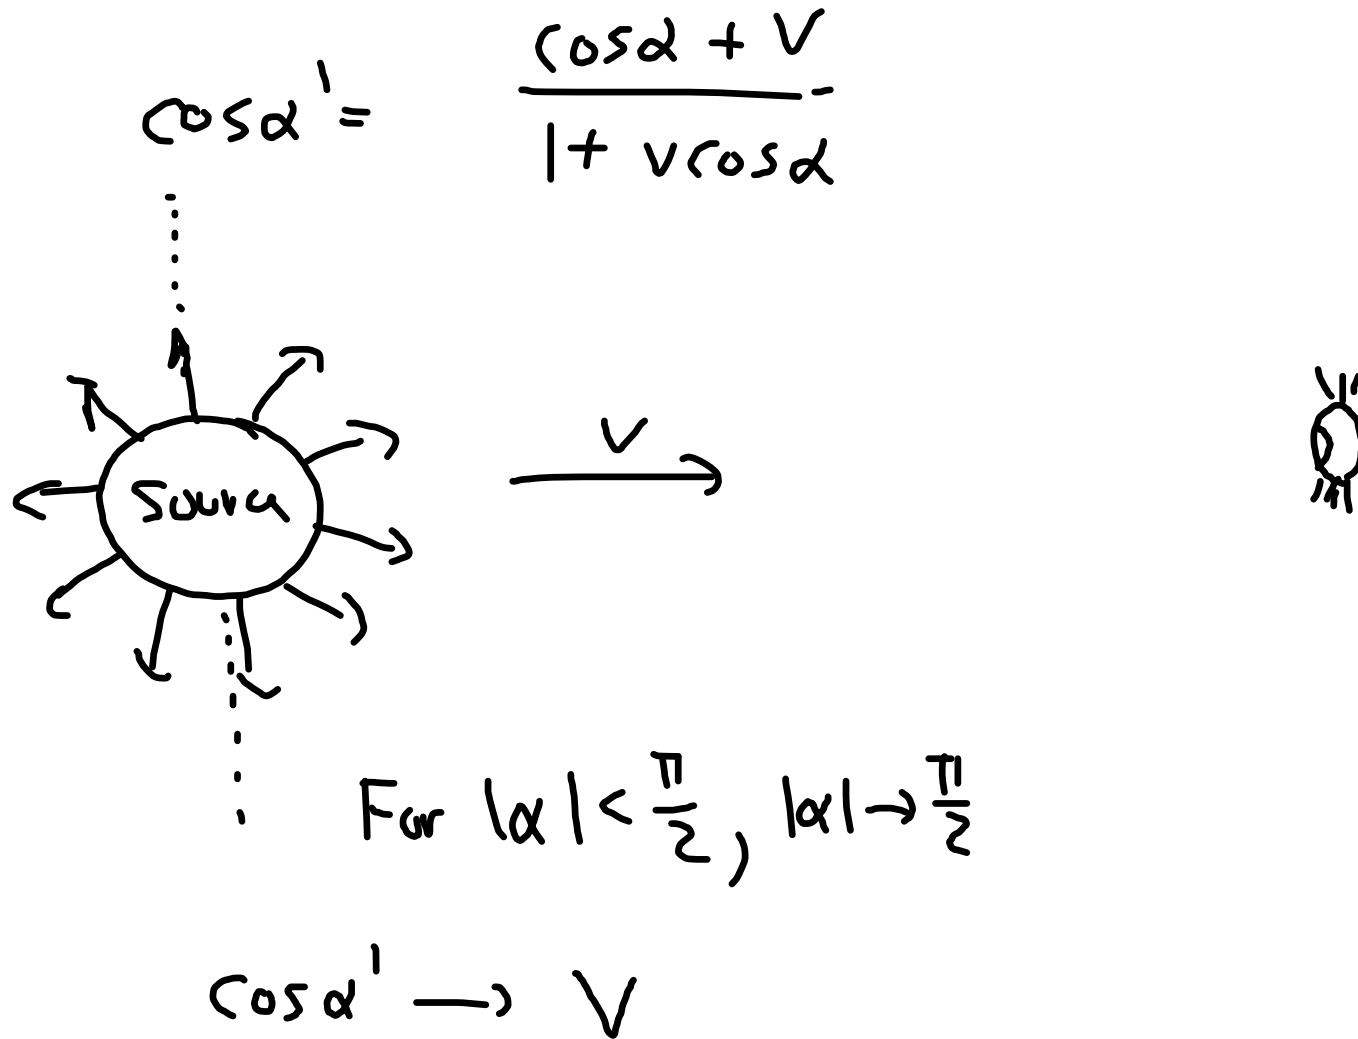 cosα' = (cosα + v)/(1 + vcosα)
Source
v
For |α| < π/2, |α| → π/2
cosα' → v